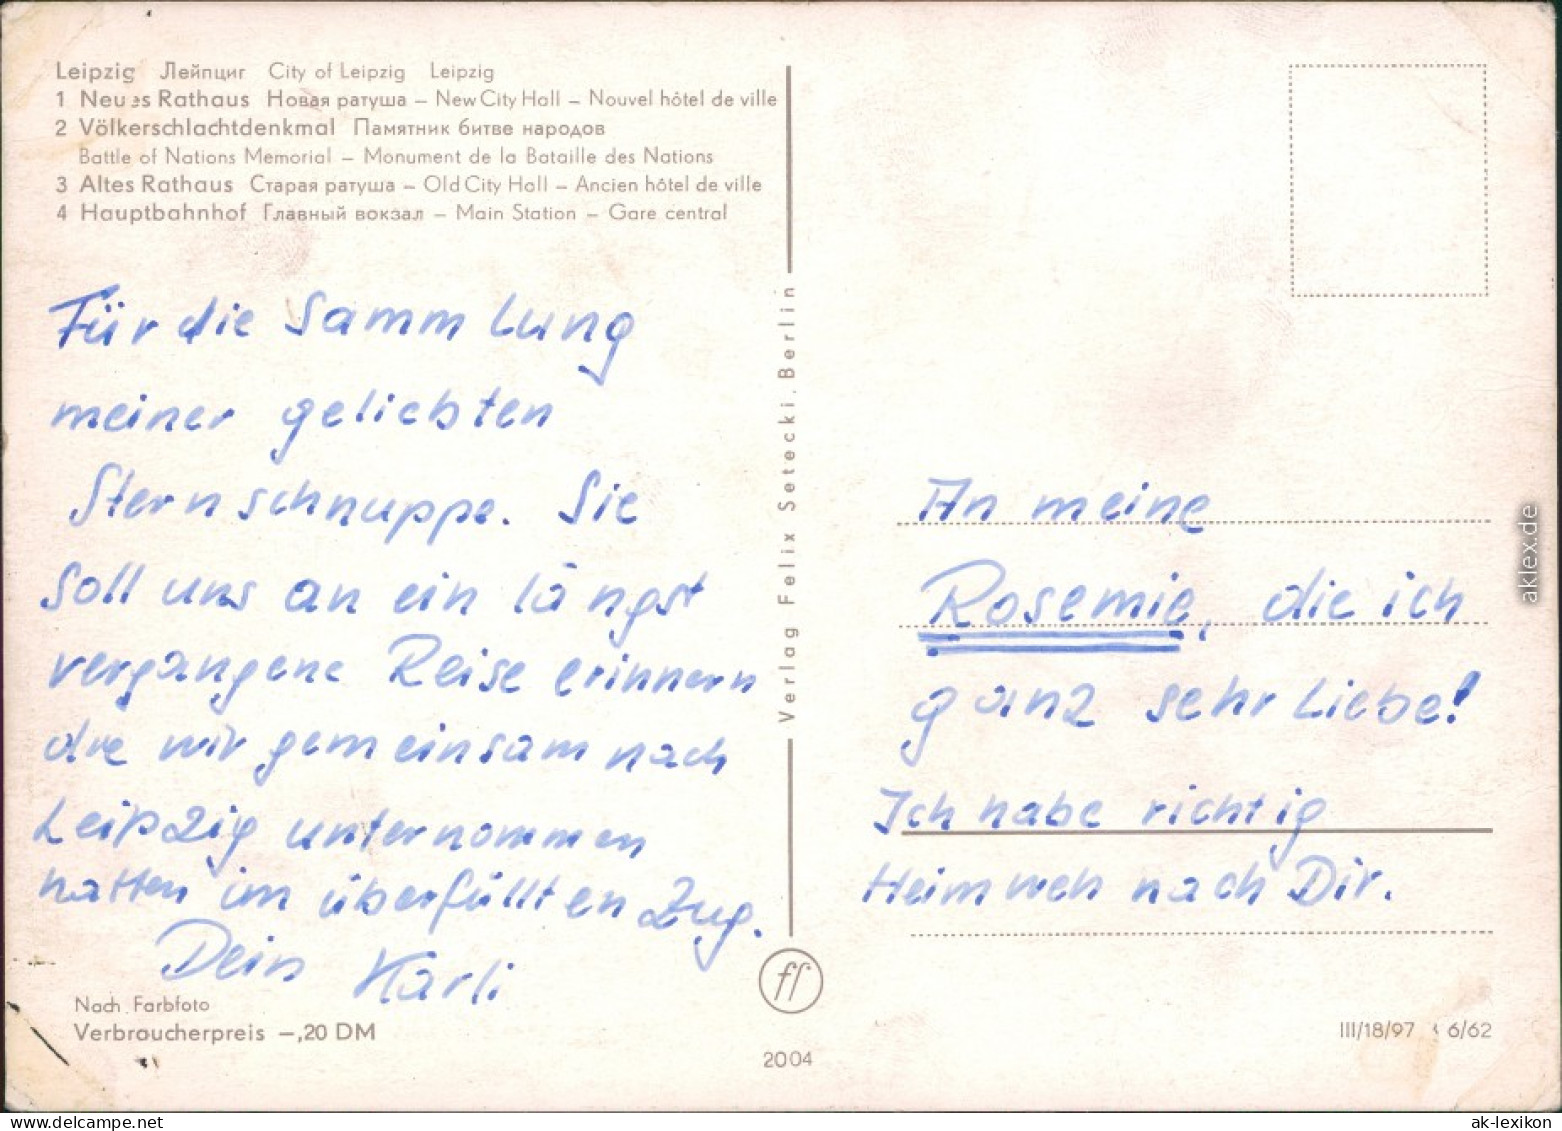 Leipzig Лейпциг City of Leipzig Leipzig
1 Neues Rathaus Новая ратуша – New City Hall – Nouvel hôtel de ville
2 Völkerschlachtdenkmal Памятник битве народов
Battle of Nations Memorial – Monument de la Bataille des Nations
3 Altes Rathaus Старая ратуша – Old City Hall – Ancien hôtel de ville
4 Hauptbahnhof Главный вокзал – Main Station – Gare central
Für die Sammlung
meiner geliebten
Sternschnuppe. Sie
soll uns an ein längst
vergangene Reise erinnern
die wir gemeinsam nach
Leipzig unternommen
hatten im überfüllten Zug.
Dein Karli
Nach Farbfoto
Verbraucherpreis –,20 DM
Verlag Felix Setecki, Berlin
fs
2004
An meine
Rosemie, die ich
ganz sehr Liebe!
Ich habe richtig
Heimweh nach Dir.
III/18/97 6/62
aklex.de
www.delcampe.net
ak-lexikon